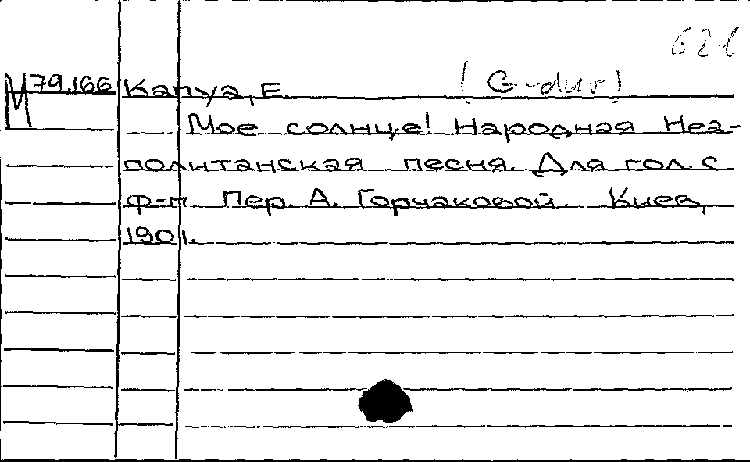 М 79.166 Капуа, Е. (G-dur)
Мое солнце! Народная Неа-
политанская песня. Для гол. с
ф-п. Пер. А. Горчаковой. Киев,
1901.